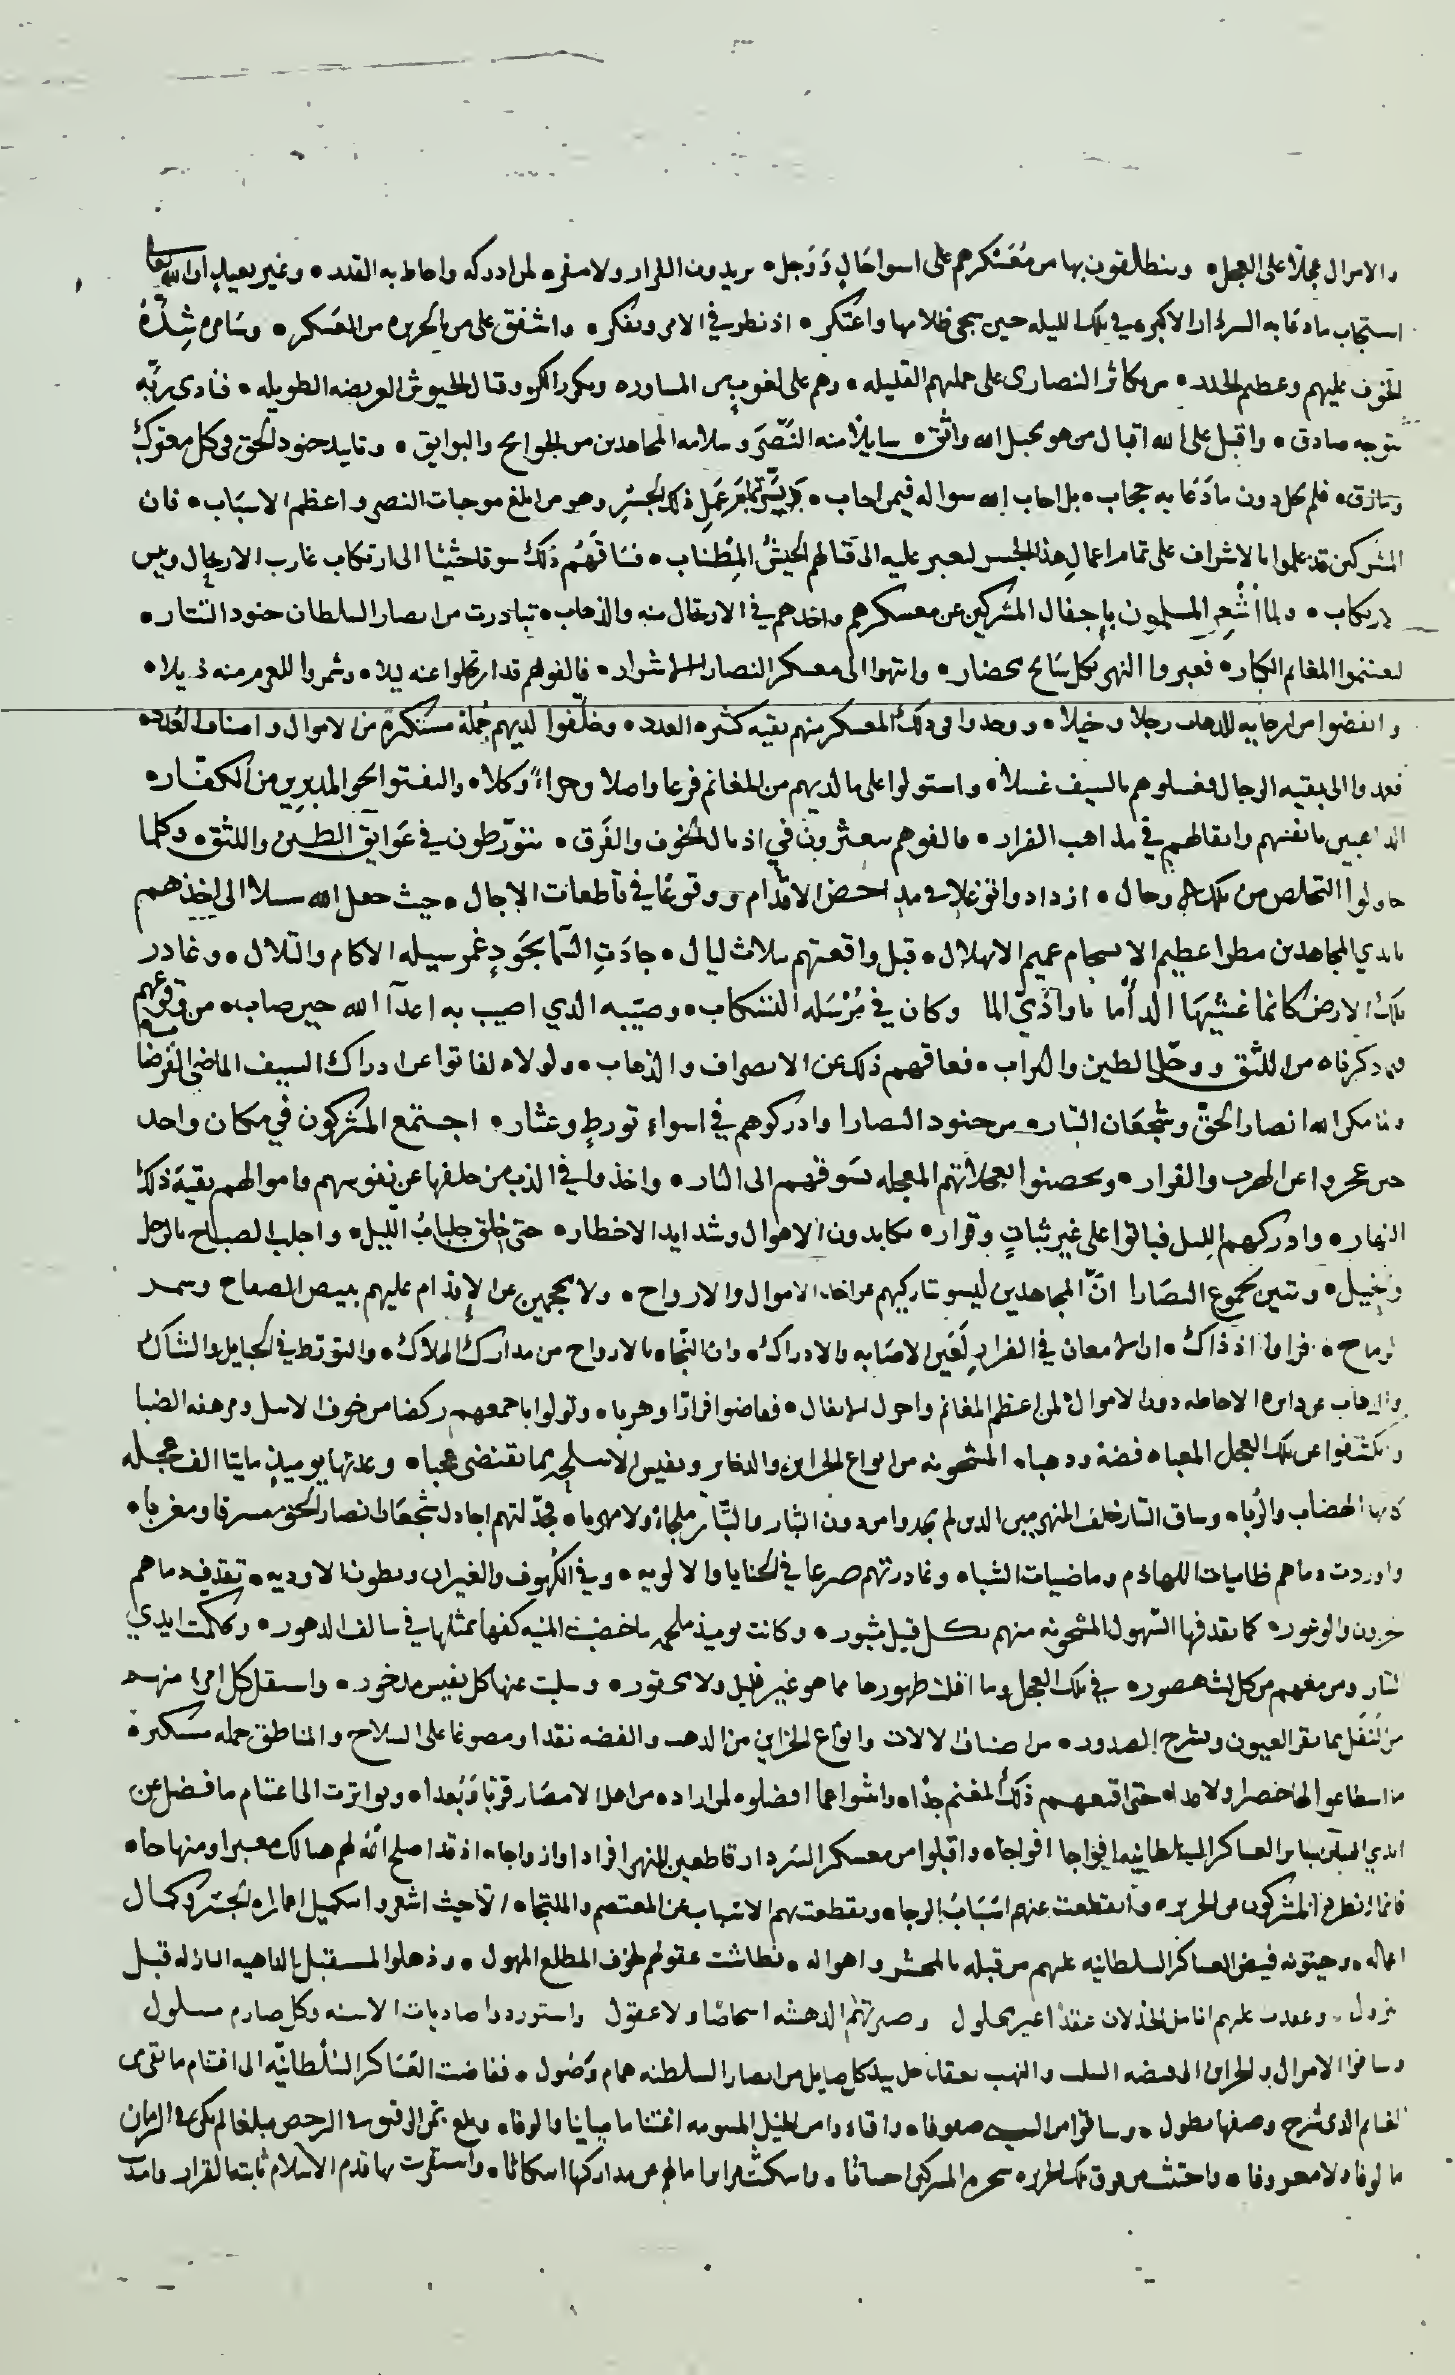 والاموال عجلا على العجل • وينطلقون بها من معسكرهم على اسوا حال ووجل • يريدون الفرار ولا مفر • لمن ادركه واحاط به القدر • وغير بعيد ان الله تعالى
استجاب ما دعا به السردار الاكبر • في تلك الليله حين سجى ظلامها واعتكر • اذ نظر في الامر وتفكر • واشفق على من بالجزيره من العسكر • وسامره شدة
الخوف عليهم وعظم الحذر • من تكاثر النصارى على جملتهم القليله • وهم على لغوب من المساوره وتكرر الكر وقتال الجيوش العريضه الطويله • فنادى ربه
بتوجه صادق • واقبل على الله اقبال من هو بحبل الله واثق • سايلا منه النصر وسلامه المجاهدين من الجوايح والبوايق • وتاييد جنود الحق في كل معترك
ومازق • فلم يحل دون ما دعا به حجاب • بل اجاب الله سواله فيمن اجاب • عمل ذلك الجسر وهو من ابلغ موجبات النصر واعظم الاسباب • فان
المشركين قد علموا بالاشراف على تمام اعمال هذا الجسر ليعبر عليه الى قتالهم الجيش المطناب • فساقهم ذلك سوقا حثيثا الى ارتكاب غارب الارتحال وبيس
الارتكاب • ولما اشعر المسلمون باجفال المشركين عن معسكرهم واخذهم في الارتحال منه والذهاب • تبادرت من انصار السلطان جنود التتار •
ليغتنموا المغانم الكبار • فعبروا النهر بكل سابح محضار • وانتهوا الى معسكر النصارا الاشرار • فالفوهم قد ارتحلوا عنه ليلا • وشمروا للعزم منه ذيلا •
وانفضوا من ارجايه للذهاب رجلا وخيلا • ووجدوا في ذلك المعسكر منهم بقيه كثيره العدد • وخلفوا لديهم جملة مستكثرة من الاموال واصناف العدد •
فعمدوا الى بقيه الرجال فغسلوهم بالسيف غسلا • واستولوا على ما لديهم من المغانم فرعا واصلا وجزاء وكلا • والتفتوا نحو المدبرين من الكفار •
الذاهبين بانفسهم واثقالهم في مذاهب الفرار • فالفوهم يتعثرون في اذيال الخوف والفرق • يتورطون في عوايق الطين واللثق • وكلما
حاولوا التخلص من تلك الاوحال • ازدادوا توغلا في مداحض الاقدام ووقوعا في قاطعات الاجال • حيث جعل الله سبيلا الى اخذهم
بايدي المجاهدين مطرا عظيم الانسجام عميم الانهلال • قبل واقعتهم بثلاث ليال • جادت السما بجود غمر سيله الاكام والتلال • وغادر
تلك الارض كانما غشيها الداما باواذي الما وكان في مرسله التسكاب • وصيبه الذي اصيب به اعدا الله حين صاب • من وقوعهم
فيما ذكرناه من اللثق ووحل الطين والتراب • فعاقهم ذلك عن الانصراف والذهاب • ولولاه لفاتوا عن ادراك السيف الماضي القرضاب
ولما مكن الله انصار الحق وشجعان التتار • من جنود النصارا وادركوهم في اسواء تورط وعثار • اجتمع المشركون في مكان واحد
حين عجزوا عن الهرب والفرار • وتحصنوا بعجلاتهم المعجله بسوقهم الى النار • واخذوا في الذب من خلفها عن نفوسهم واموالهم بقية ذلك
النهار • وادركهم الليل فباتوا على غير ثبات وقرار • يكابدون الاهوال وشدايد الاخطار • حتى خلق جلباب الليل • واجلب الصباح بالرجل
والخيل • وتبين لجموع النصارا ان المجاهدين ليسوا تاركيهم عن اخذ الاموال والارواح • ولا محجمين عن الاقدام عليهم ببيض الصفاح وسمر
الرماح • فراوا اذ ذاك • ان الامعان في الفرار لعين الاصابه والادراك • وان النجاه بالارواح من مدارك الهلاك • والتورط في الحبايل والشباك
والذهاب عن دايره الاحاطه دون الاموال لمن اعظم المغانم واجول الانفال • فمعضوا فرارا وهربا • وتولوا باجمعهم ركضا من خوف الاسل ومرهفه الضبا
وتكشفوا عن تلك العجل المعباه فضة وذهبا • المشحونه من انواع الخزاين والذخاير ونفيس الاسلحه بما تقتضى عجبا • وعدتها يوميذ مايتا الف عجله
كانها الهضاب والربا • وساق التتار خلف المنهزمين الذين لم يجدوا من دون التبار والتتار ملجاء ولا مهربا • فجدلتهم اجادل شجعان انصار الحق مشرقا ومغربا •
واوردت دماهم ظاميات اللهاذم وماضيات الشبا • وغادرتهم صرعا في الحنايا والالويه • وفي الكهوف والغيران وبطون الاوديه • تقذف دماهم
الحزون والوعور • كما يقذفها السهول المشحونه منهم بكل قبل مثبور • وكانت يوميذ ملحمه ما خضبت المنيه كفها بمثلها في سالف الدهور • وتحكمت ايدي
التتار ومن معهم من كل ليث هصور • في تلك العجل وما اقلت ظهورها مما هو غير قليل ولا محقور • وسلبت عنها كل نفيس مذخور • واستقل كل امرئ منهم
من النفل بما يقر العيون ويشرح الصدور • من اصناف الالات وانواع الخزاين من الذهب والفضه نقدا ومصوغا على السلاح والمناطق جمله مستكثره
ما استطاعوا لها حصرا ولا عدا • حتى اقنعهم ذلك المغنم جدا • وانثنوا عما افضلوه لمن اراده من اهل الامصار قربا وبعدا • وتواترت الى اغتنام ما فضل عن
ايدي السابقين ساير العساكر السلطانيه افواجا افواجا • واقبلوا من معسكر السردار قاطعين النهر افرادا وازواجا • اذ قد اصلح الله لهم هنالك معبرا ومنهاجا •
فانما انطرد المشركون من الجزيره • وانقطعت عنهم اسباب الرجا • وتقطعت بهم الاسباب عن المعتصم والملتجا • لا حيث اشعروا بتكميل اعمال الجسر وكمال
اعماله • وخيفوه فيض العساكر السلطانيه عليهم من قبله بالمحشر واهواله • فطاشت عقولهم لخوف المطلع المهول • وذهلوا لمستقبل الداهيه النازله قبل
نزول • وعقدت عليهم انامل الخذلان عقدا غير محلول وصيرتهم الدهشه اشخاصا ولا عقول واستوردوا صاديات الاسنه وكل صارم مسلول
وساقوا الاموال والخزاين الى قبضه السلب والنهب بعقال حل بيد كل صايل من انصار السلطنه همام وصول • ففاضت العساكر السلطانيه الى اغتنام ما بقى من
الغنايم الذي شرح وصفها يطول • وساقوا من السبي صفوفا • واقتادوا من الخيل المسومه اغتناما مياينا والوفا • وبلغ ثمن الرقيق في الرخص مبلغا لم يكن في الزمان
مالوفا • ولا معروفا • واجتث من فوق تلك الجزيره شجره المشركين اجتثاثا • واستقرت بها قدم الاسلام ثابته القرار وامتدت